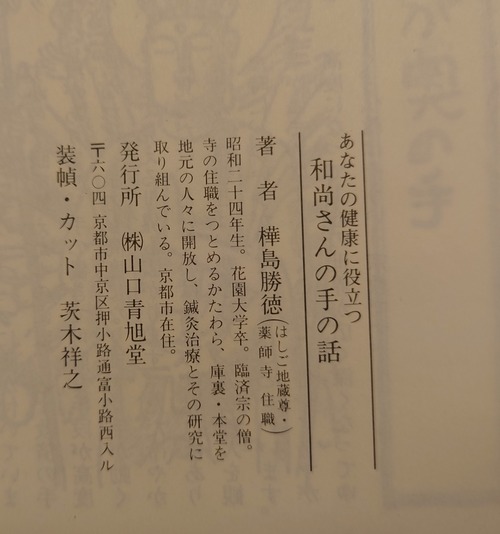 あなたの健康に役立つ
和尚さんの手の話
著者 樺島勝徳(はしご地蔵尊・薬師寺住職)
昭和二十四年生。花園大学卒。臨済宗の僧。
寺の住職をつとめるかたわら、庫裏・本堂を
地元の人々に開放し、鍼灸治療とその研究に
取り組んでいる。京都市在住。
発行所 ㈱山口青旭堂
〒六〇四 京都市中京区押小路通富小路西入ル
装幀・カット 茨木祥之